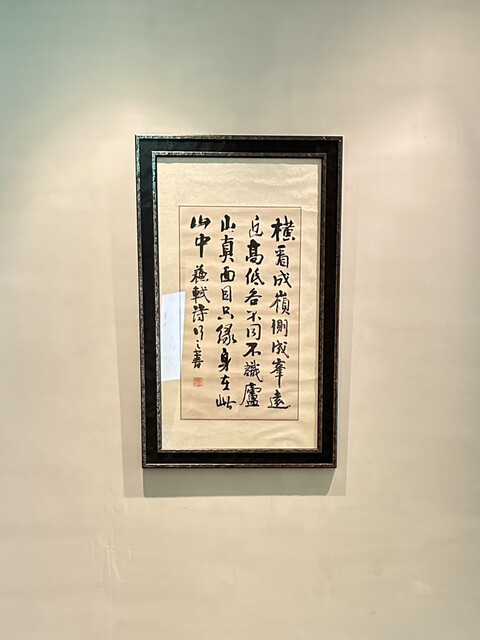 橫看成嶺側成峯遠
近高低各不同不識廬
山真面目只緣身在此
山中 蘇軾詩